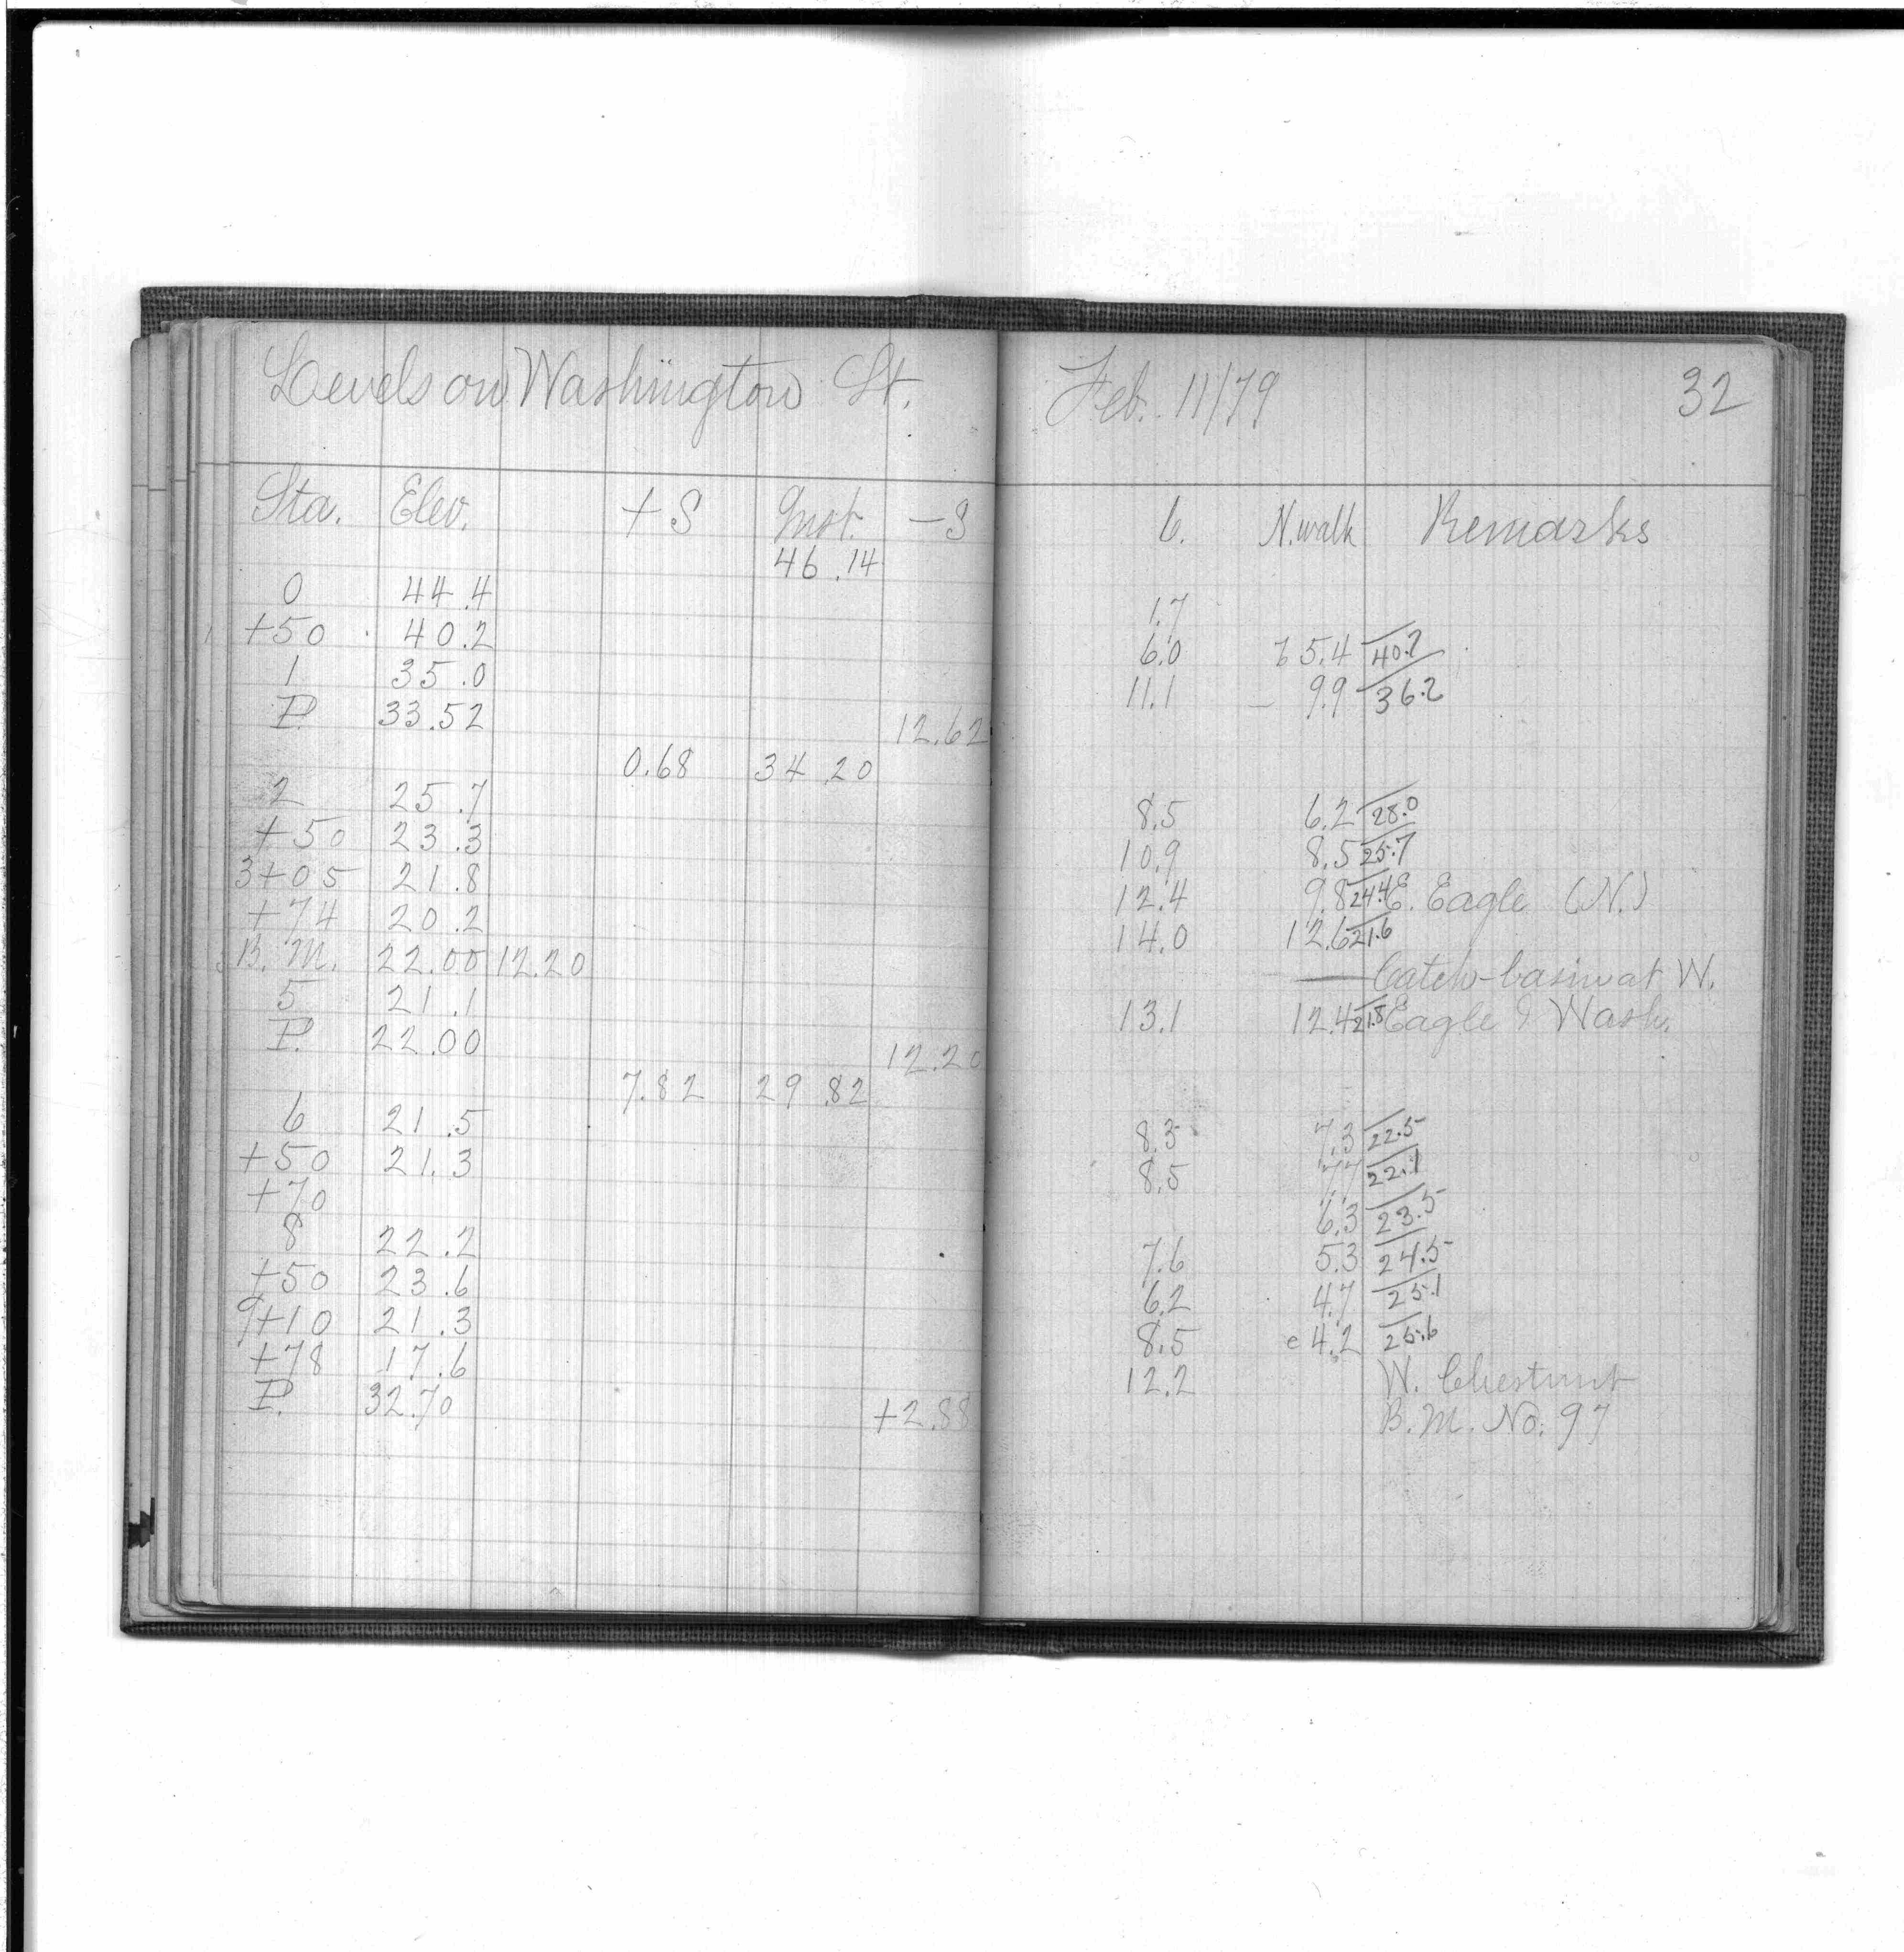 Levels on Washington St. Feb. 11/79 32
Sta. Elev. + S Inst. - S C. N. walk Remarks
46.14
0 44.4 1.7
+50 40.2 6.0 5.4 40.7
1 35.0 11.1 9.9 36.2
P. 33.52 12.62
0.68 34.20
2 25.7 8.5 6.2 28.0
+50 23.3 10.9 8.5 25.7
3+05 21.8 12.4 9.8 24.4 E. Eagle (N.)
+74 20.2 14.0 12.6 21.6
B. M. 22.00 12.20 Catch-basin at W.
5 21.1 13.1 12.4 21.8 Eagle & Wash.
P. 22.00 12.20
7.82 29.82
6 21.5 8.3 7.3 22.5
+50 21.3 8.5 7.7 22.1
+70 6.3 23.5
8 22.2 7.6 5.3 24.5
+50 23.6 6.2 4.7 25.1
9+10 21.3 8.5 e 4.2 25.6
+78 17.6 12.2 W. Chestnut
P. 32.70 +2.88 B. M. No. 97